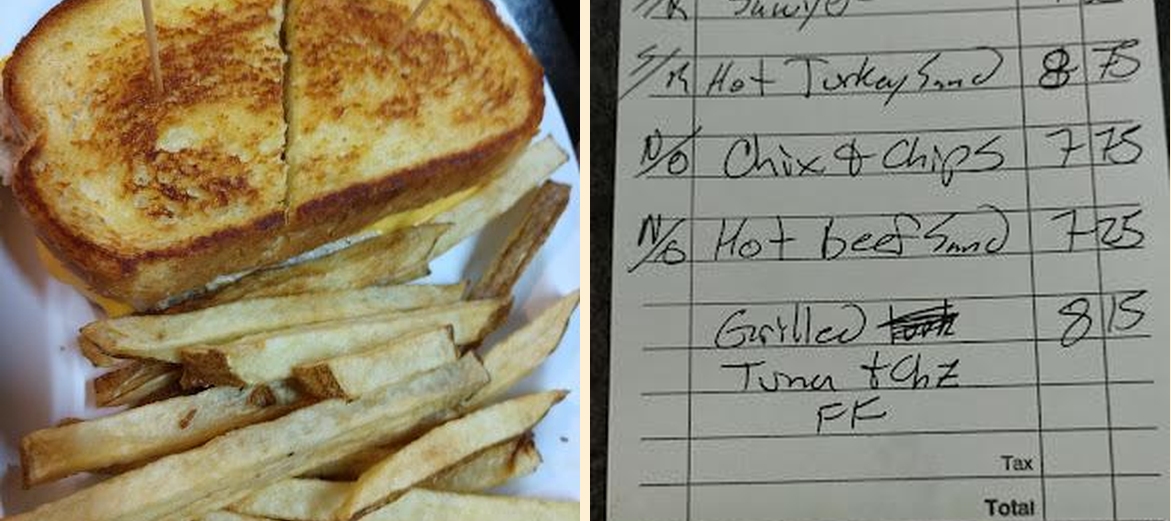 S/R Hot Turkey Sand 8 75
N/O Chix & Chips 7 75
N/O Hot beef Sand 7 25
Grilled 8 15
Tuna & Chz
FF
Tax
Total